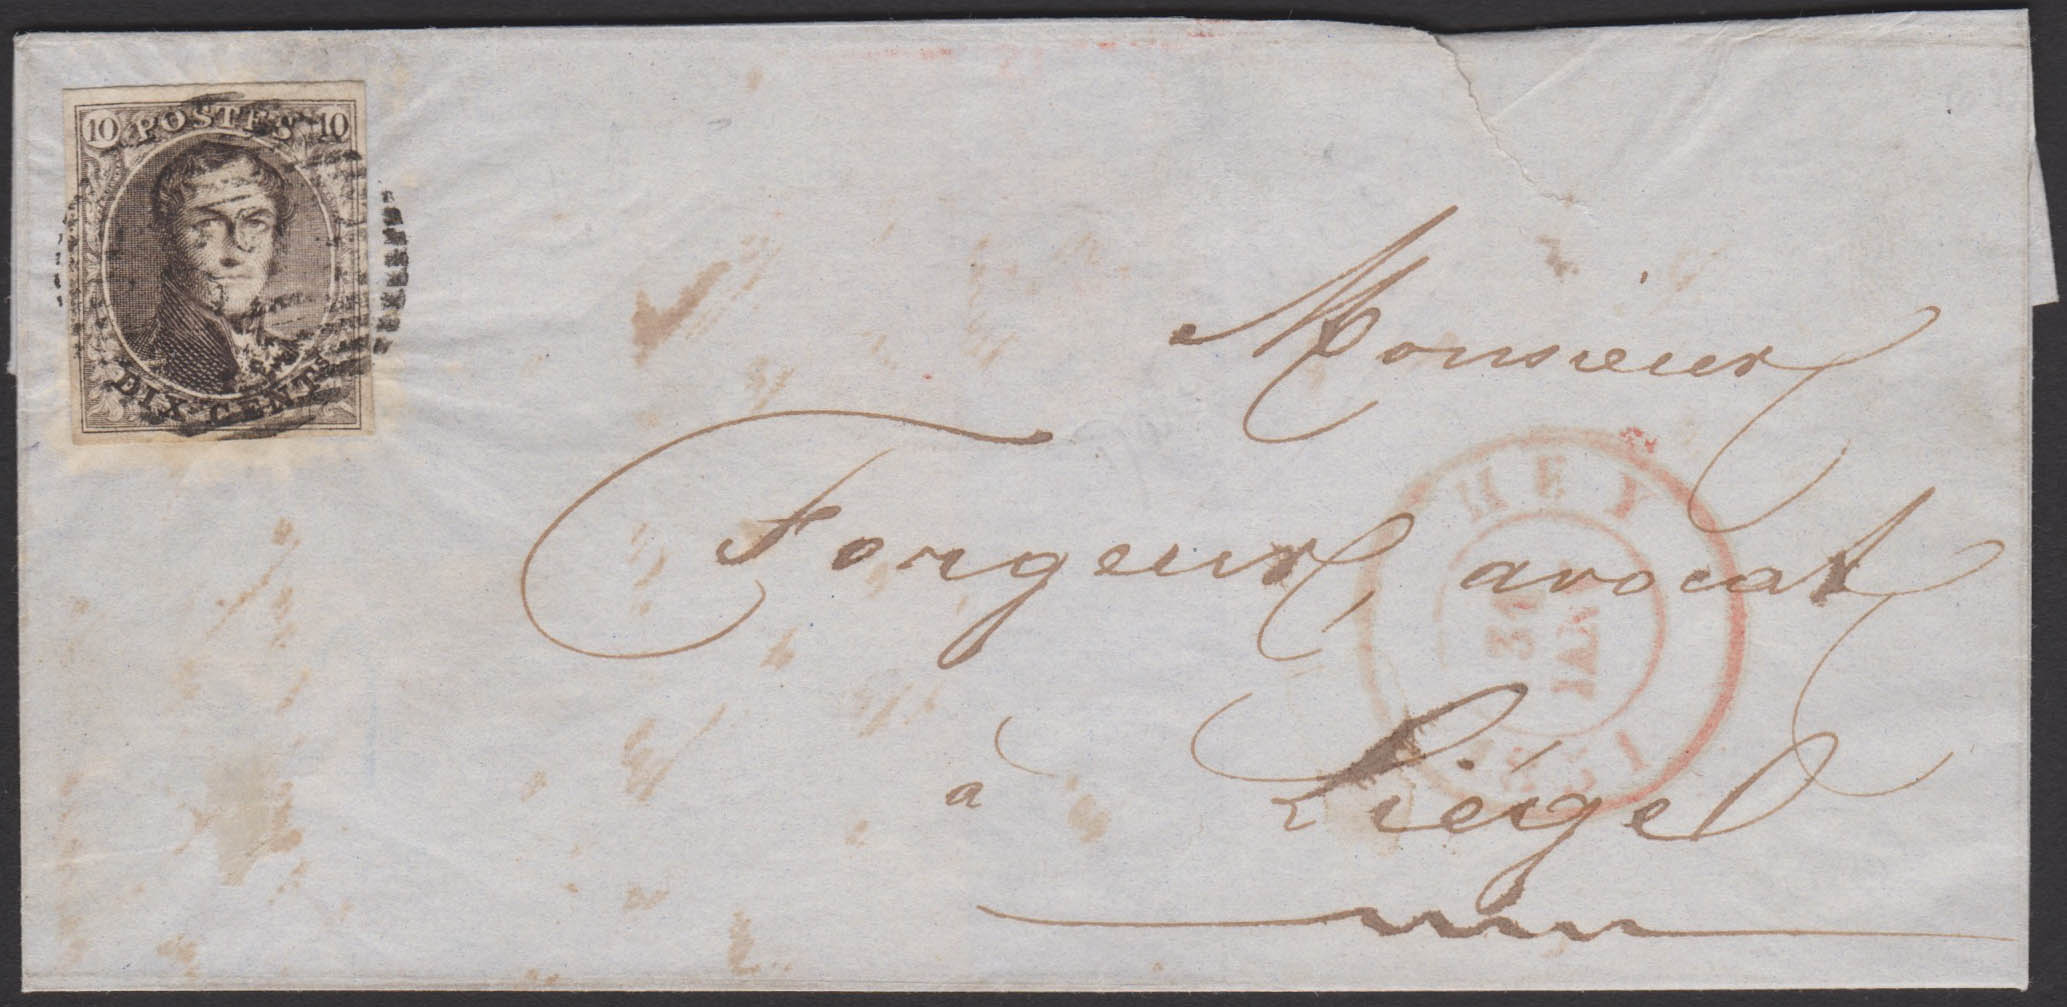 10 POSTES 10
DIX CENTS
Monsieur
Forgeur, avocat
à Liége
HUY
31
JANV
1851